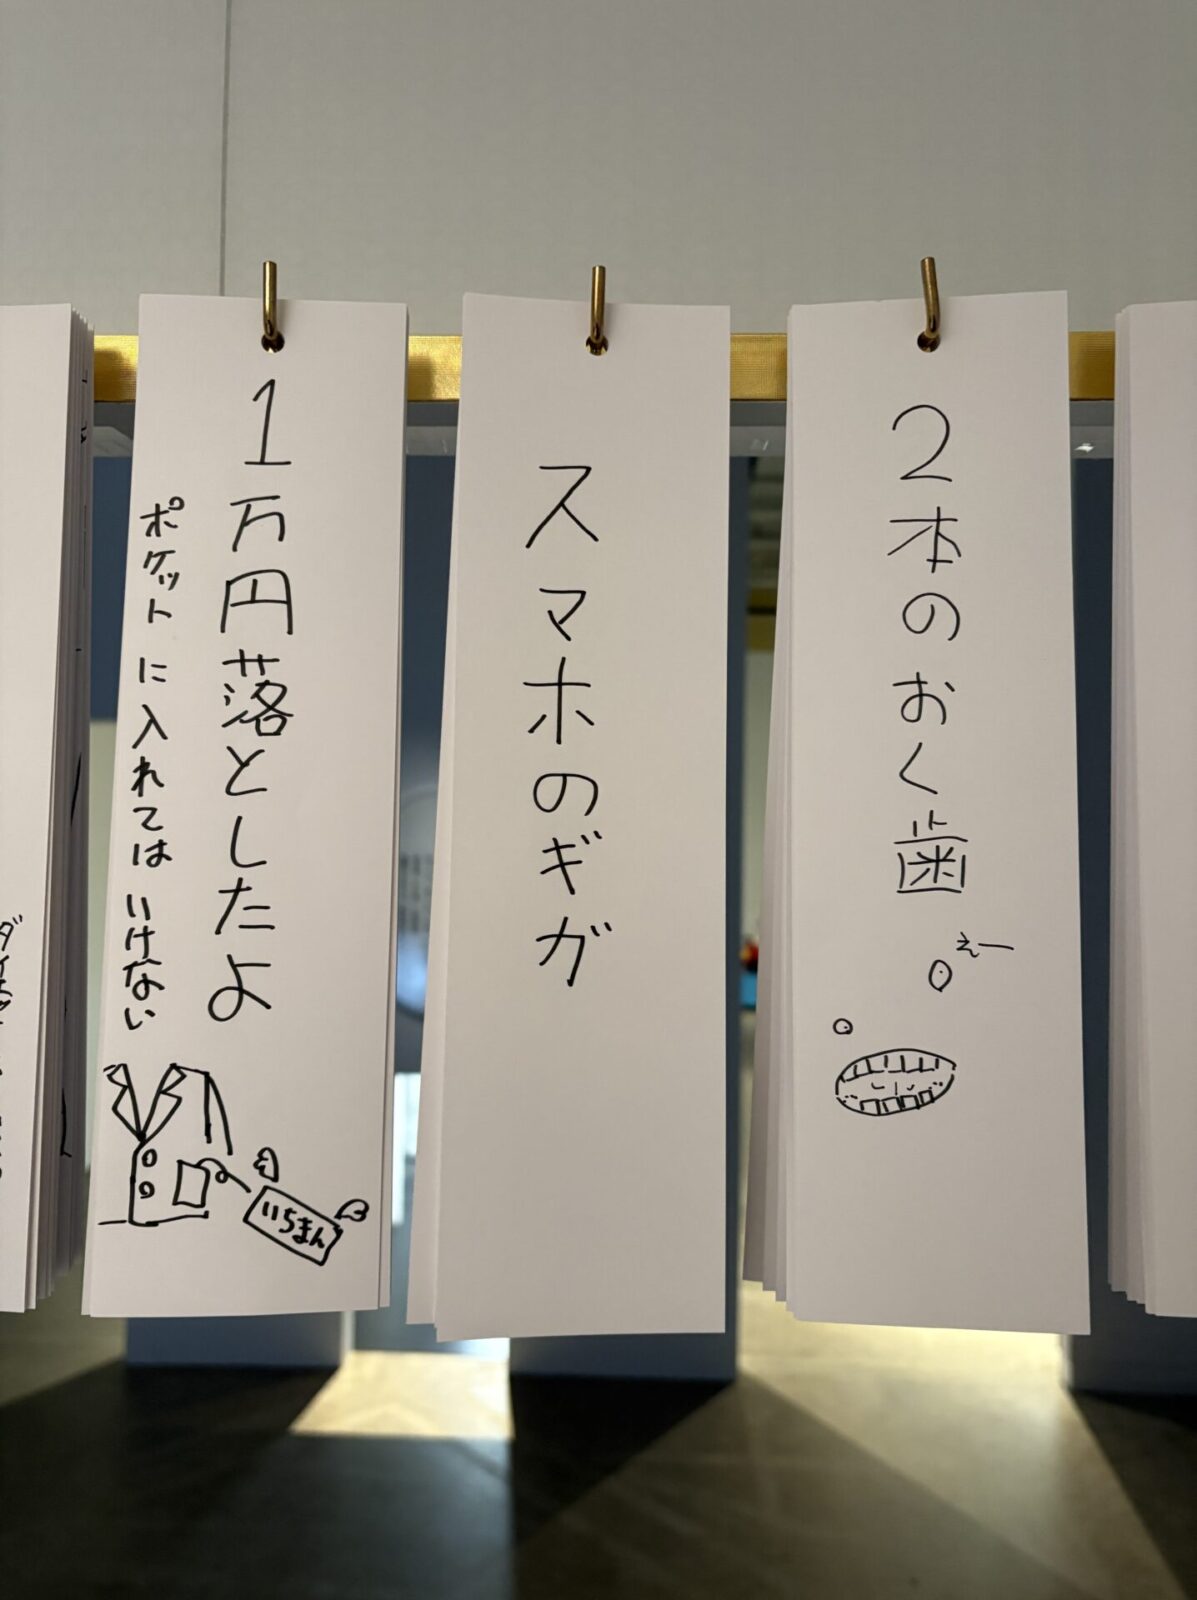 1万円落としたよ
ポケットに入れてはいけない
いちまん
スマホのギガ
2本のおく歯
えー